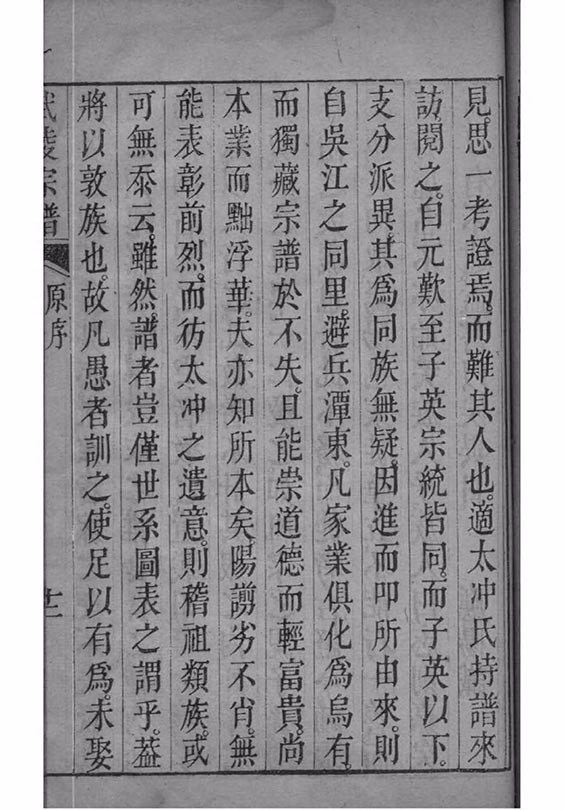 見。思一考證焉。而難其人也。適太冲氏持譜來
訪。閱之。自元歎至子英宗統皆同。而子英以下。
支分派異。其爲同族無疑。因進而叩所由來。則
自吳江之同里。避兵潭東。凡家業俱化爲烏有。
而獨藏宗譜於不失。且能崇道德而輕富貴。尚
本業而黜浮華。夫亦知所本矣。陽謭劣不肖。無
能表彰前烈。而彷太冲之遺意。則稽祖類族。或
可無忝云。雖然。譜者豈僅世系圖表之謂乎。葢
將以敦族也。故凡愚者訓之。使足以有爲。未娶
武陵宗譜 原序 十二